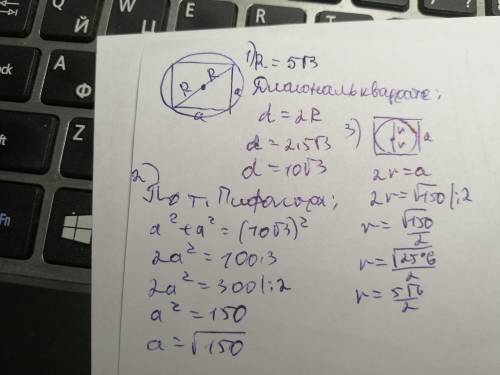 Caps Lock
Fn
Q Й
A Ф
E
R
T
1) R = 5√3
Диагональ квадрата:
d = 2R
d = 2·5√3
d = 10√3
R R a
a
2)
По т. Пифагора:
a² + a² = (10√3)²
2a² = 100·3
2a² = 300 |:2
a² = 150
a = √150
3) r r a
2r = a
2r = √150 |:2
r = √150/2
r = √25·6/2
r = 5√6/2